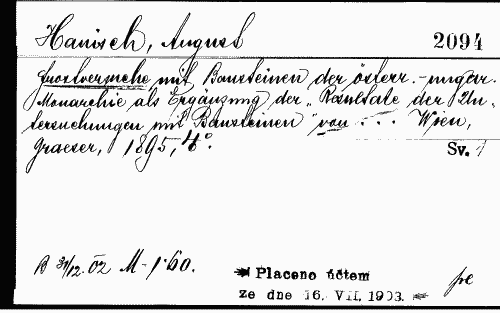 Hanisch, August 2094
Frostversuche mit Bausteinen der österr.-ungar.
Monarchie als Ergänzung der „Resultate der Un-
tersuchungen mit Bausteinen" von . . . Wien,
Graeser, 1895, 4°.
Sv. 1
B 31/12. 02 M - 1·60.
Placeno účtem
ze dne 16. VII. 1903.